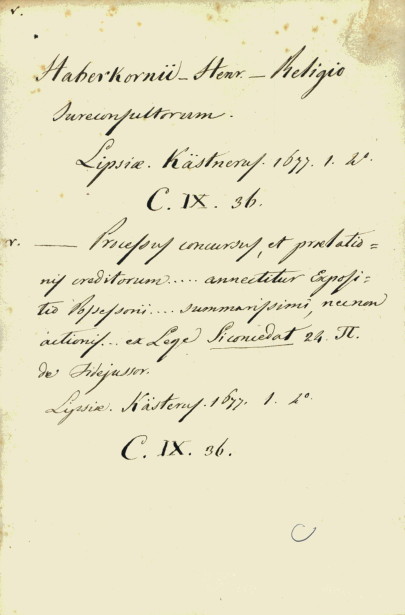 v.
Haberkornii – Henr. – Religio
Jureconsultorum.
Lipsiæ. Kästneruſ. 1677. 1. 4º.
C. IX. 36.
v. —— Proceſſuſ concurſuſ, et prælatio=
niſ creditorum..... annectitur Expoſi=
tio Poſſeſſorii.... summariſſimi, necnon
actioniſ... ex Lege Si concedat 24. Π.
de Fidejussor.
Lipsiæ. Kästeruſ. 1677. 1. 4º.
C. IX. 36.